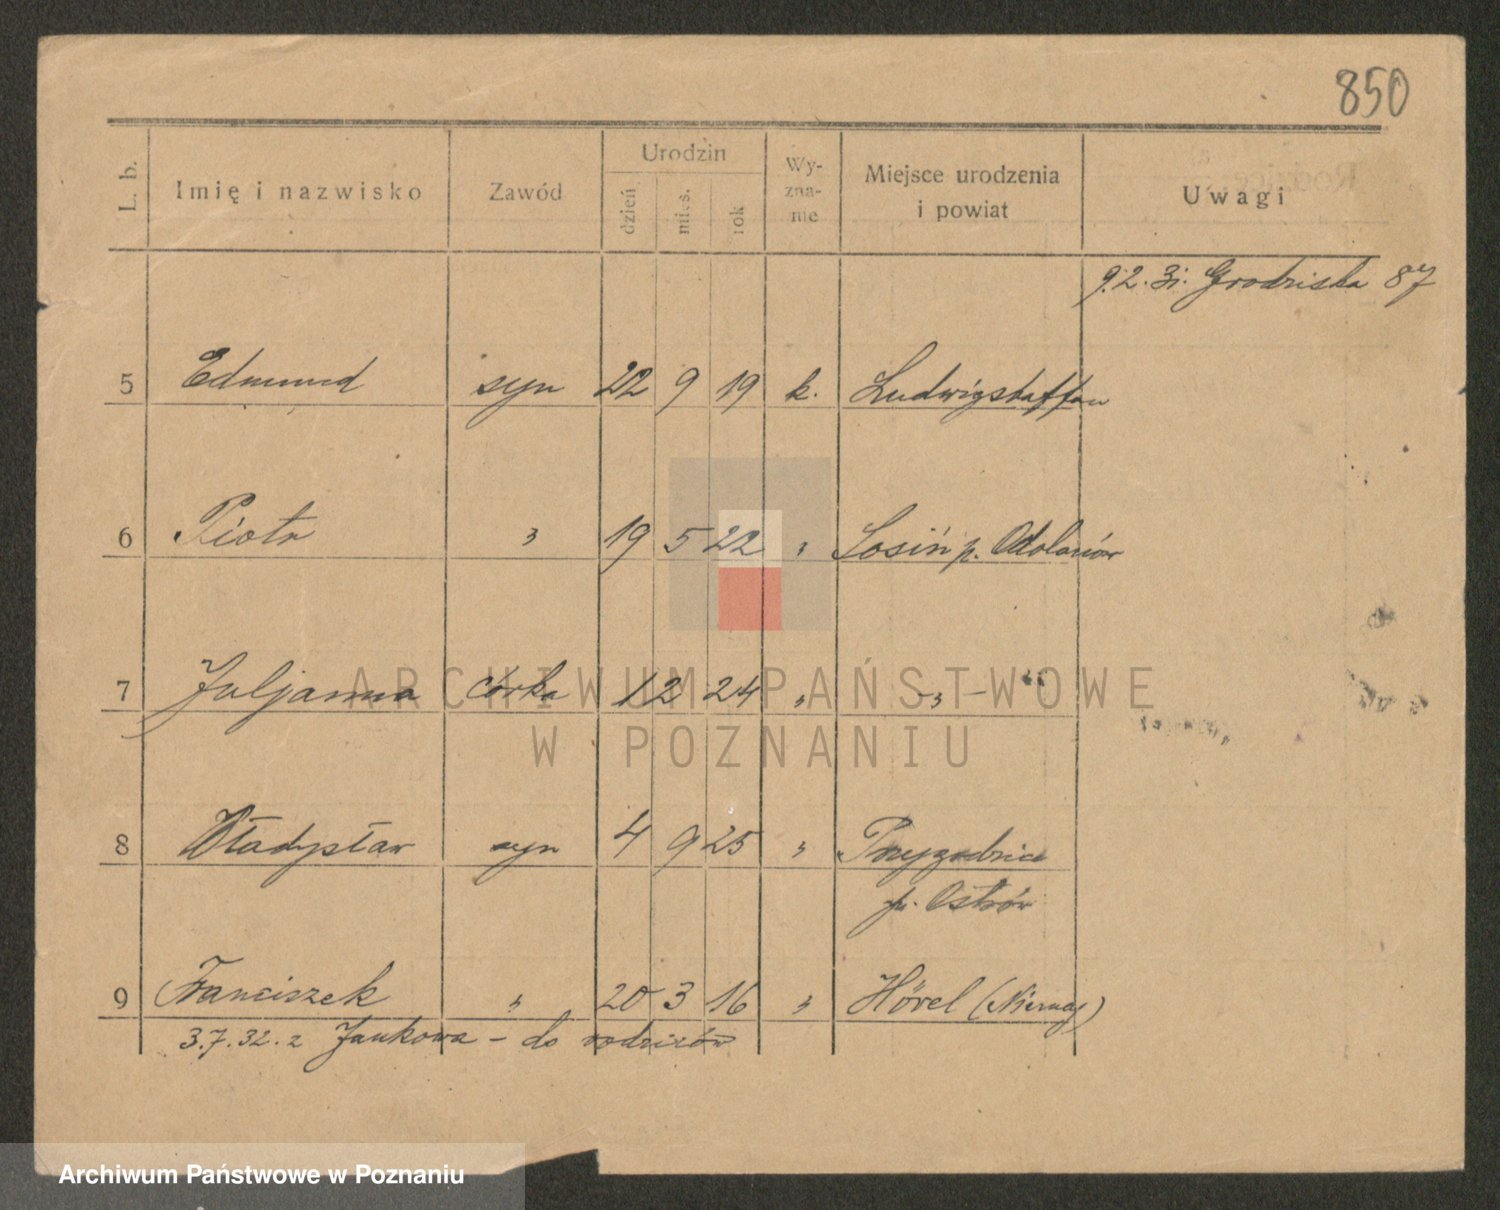 850
L. b. Imię i nazwisko Zawód Urodzin dzień mies. rok Wy-zna-nie Miejsce urodzenia i powiat Uwagi
9.2.31. Grodziska 87
5 Edmund syn 22 9 19 k. Ludwigshaffen
6 Piotr " 19 5 22 " Łosiń p. Odolanów
7 Juljanna córka 1 2 24 " - " -
8 Władysław syn 4 9 25 " Przygodzice
p. Ostrów
9 Franciszek " 20 3 16 " Hövel (Niemcy)
3.7.32. z Jankowa - do rodziców
ARCHIWUM PAŃSTWOWE
W POZNANIU
Archiwum Państwowe w Poznaniu